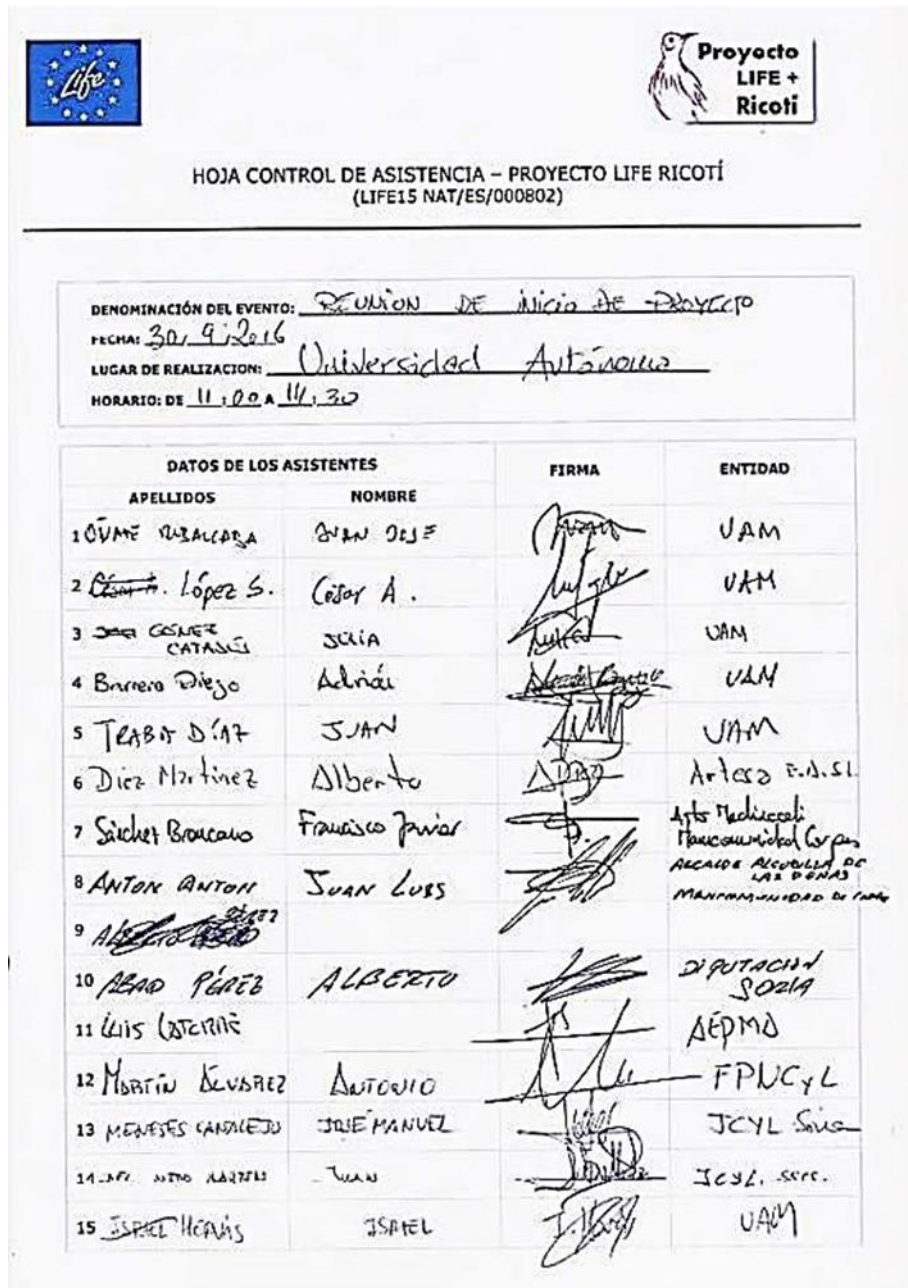 Life
Proyecto
LIFE +
Ricotí
HOJA CONTROL DE ASISTENCIA – PROYECTO LIFE RICOTÍ
(LIFE15 NAT/ES/000802)
DENOMINACIÓN DEL EVENTO: REUNION DE inicio DE PROYECTO
FECHA: 30/9/2016
LUGAR DE REALIZACION: Universidad Autónoma
HORARIO: DE 11:00 A 14:30
DATOS DE LOS ASISTENTES FIRMA ENTIDAD
APELLIDOS NOMBRE
1 JUAN JOSE UAM
2 López S. César A. UAM
3 GÓMEZ JULIA UAM
CATALÁN
4 Barrero Diego Adrián UAM
5 TRABA DÍAZ JUAN UAM
6 Díez Martínez Alberto Artesa
7 Francisco Javier
Mancomunidad
8 ANTON ANTON JUAN LUIS ALCALDE DE
LAS PEÑAS
MANCOMUNIDAD DE
9
10 ABAD PÉREZ ALBERTO DIPUTACION
SORIA
11 LUIS LATORRE AEPMA
12 MARTÍN ÁLVAREZ ANTONIO FPNCyL
13 MENESES CANALEJO JOSÉ MANUEL JCYL Soria
14 JUAN JCYL.
15 ISRAEL HERVÁS ISRAEL UAM